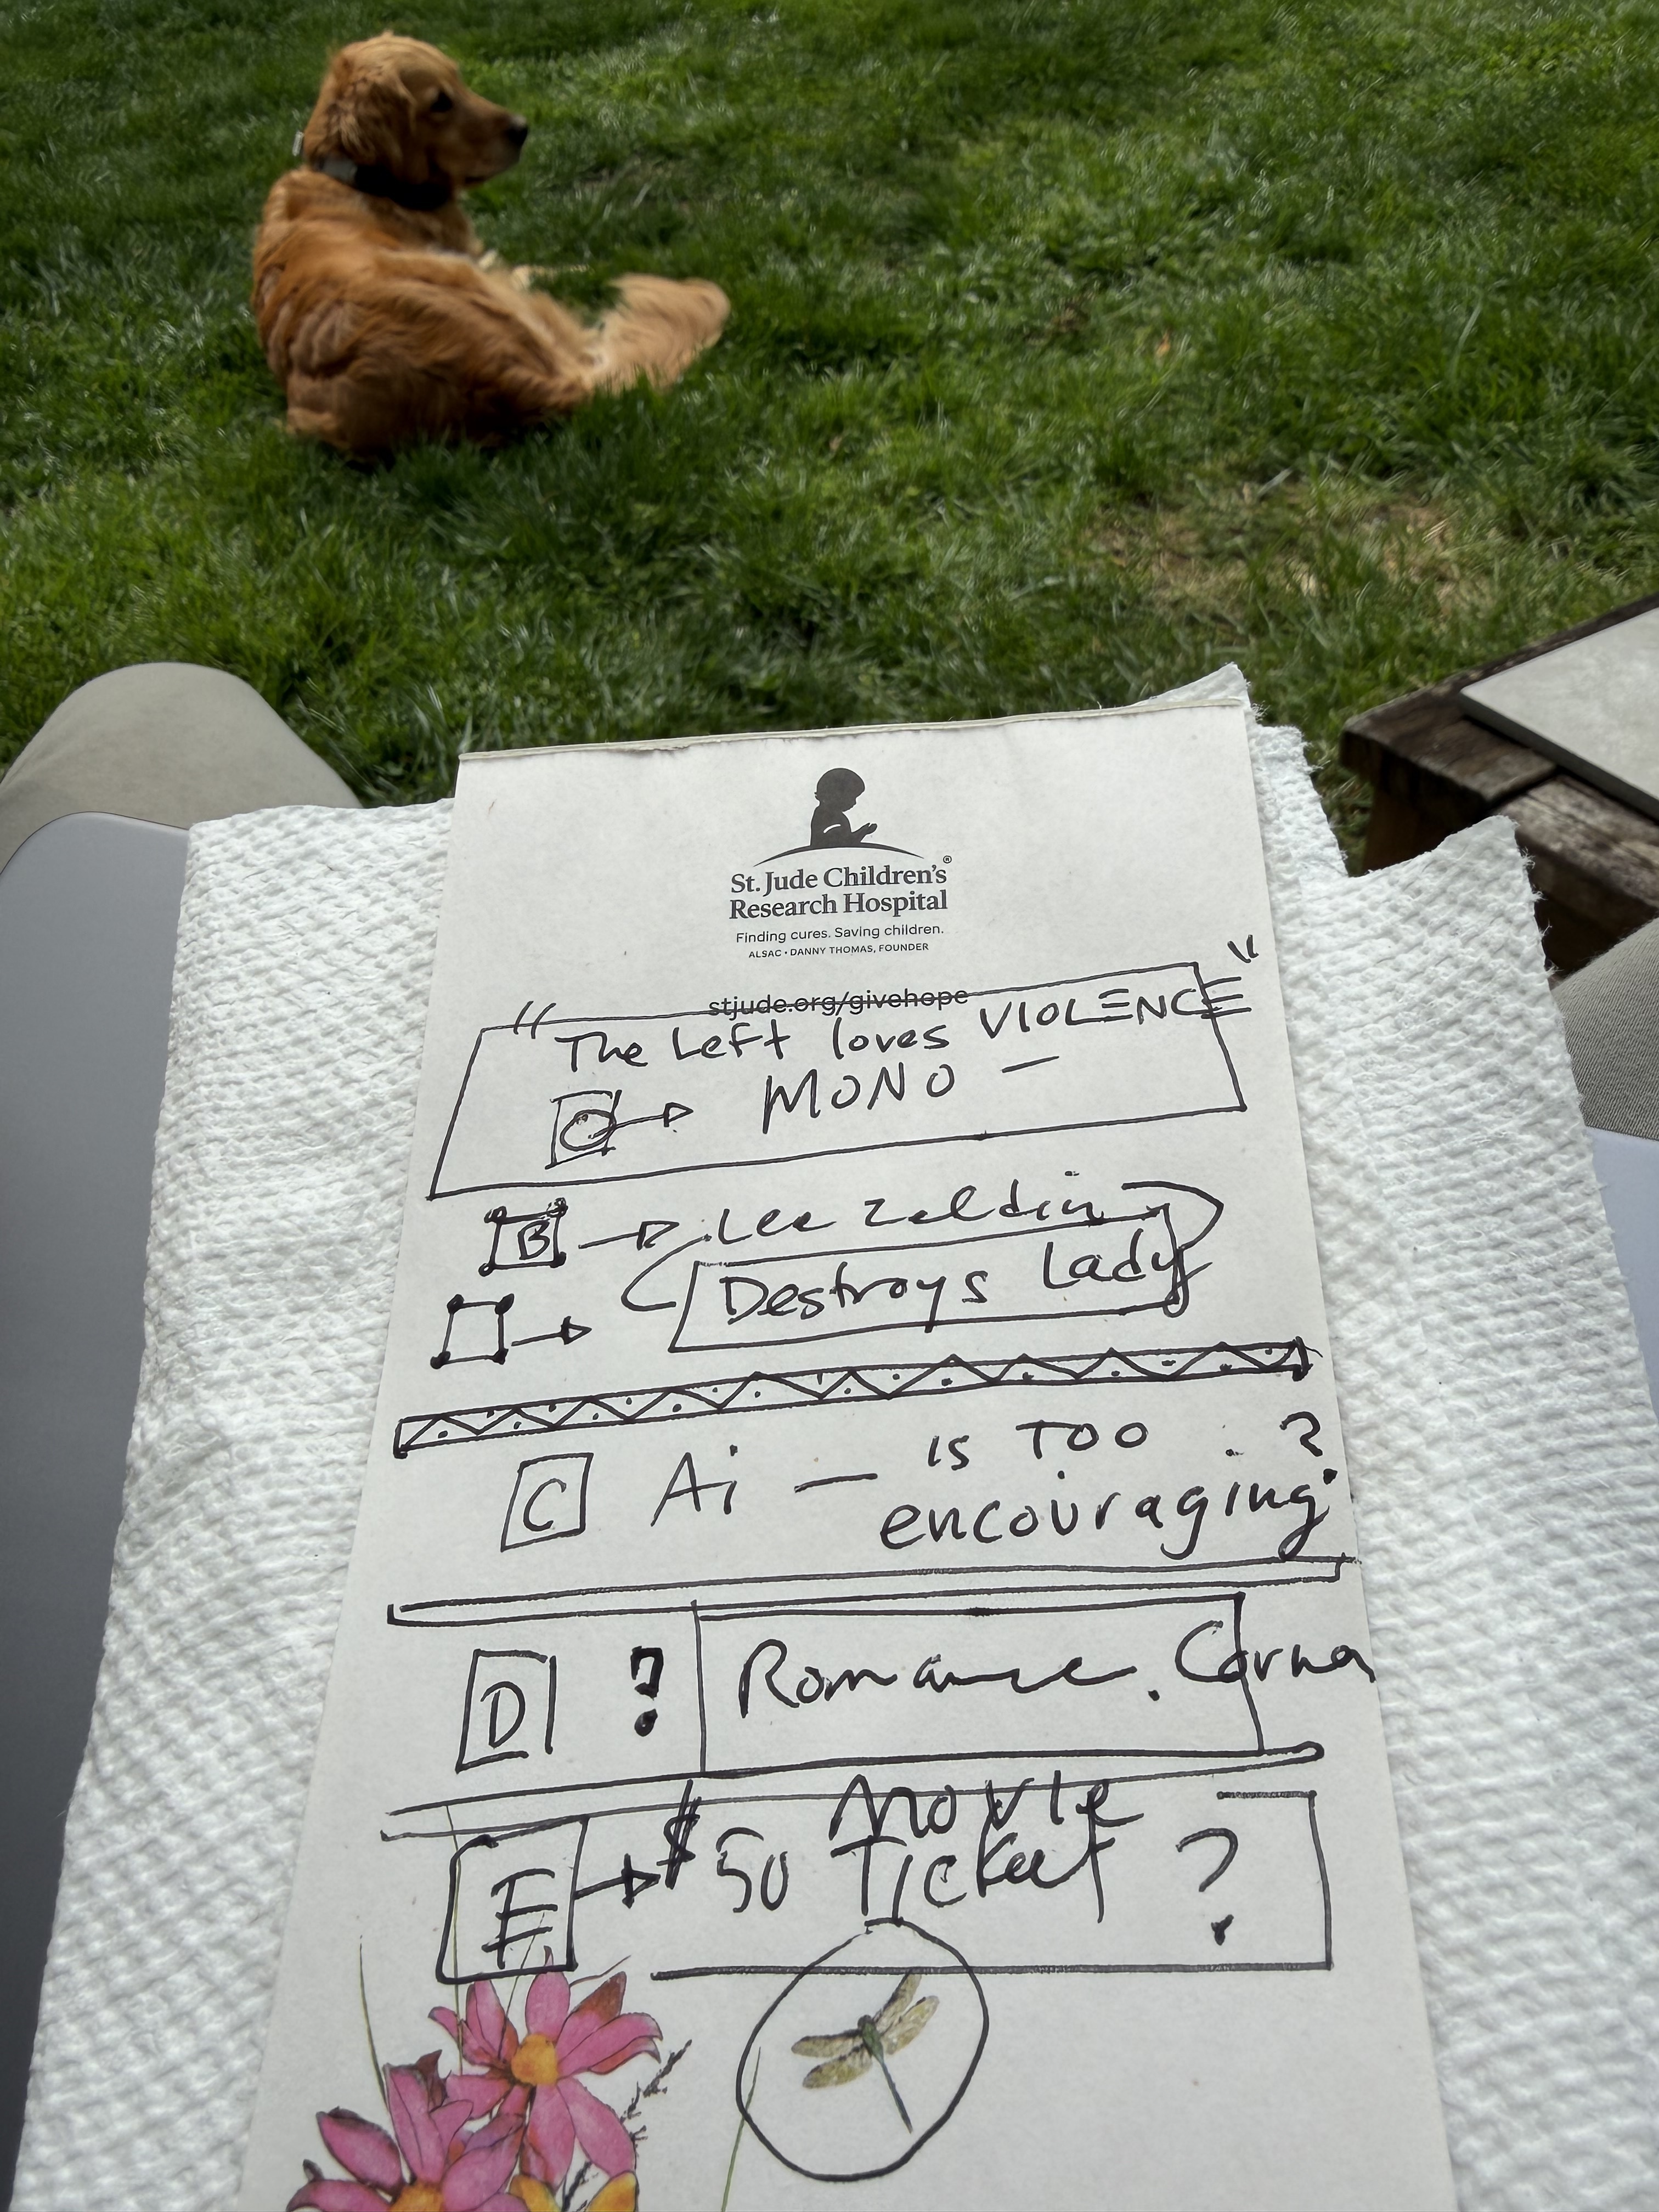 St. Jude Children's®
Research Hospital
Finding cures. Saving children.
ALSAC • DANNY THOMAS, FOUNDER
stjude.org/givehope
"The Left loves VIOLENCE"
MONO —
B Lee Zeldin
Destroys Lady
C Ai — is TOO
encouraging?
D ? Romance. Corner
E $50 Movie
Ticket ?